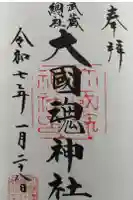 奉拝
武蔵
總社
大國魂神社
令和七年一月二十一日